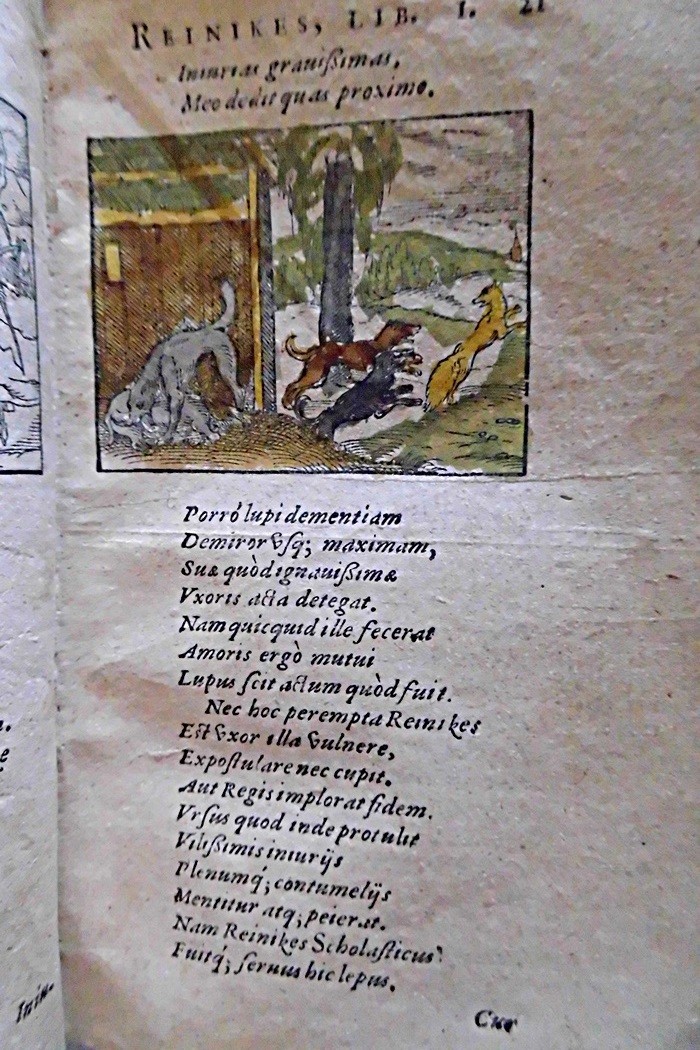 REINIKES, LIB. I. 21
Iniurias grauißimas,
Meo dedit quas proximo.
Porrò lupi dementiam
Demiror vſq; maximam,
Suæ quòd ignauißimæ
Vxoris acta detegat.
Nam quicquid ille fecerat
Amoris ergò mutui
Lupus ſcit actum quòd fuit.
Nec hoc perempta Reinikes
Eſt vxor illa vulnere,
Expoſtulare nec cupit.
Aut Regis implorat fidem.
Vrſus quod inde protulit
Vilißimis iniurijs
Plenumq́; contumelijs
Mentitur atq; peierat.
Nam Reinikes Scholaſticus
Fuitq́; ſeruus hic lepus.
Cur